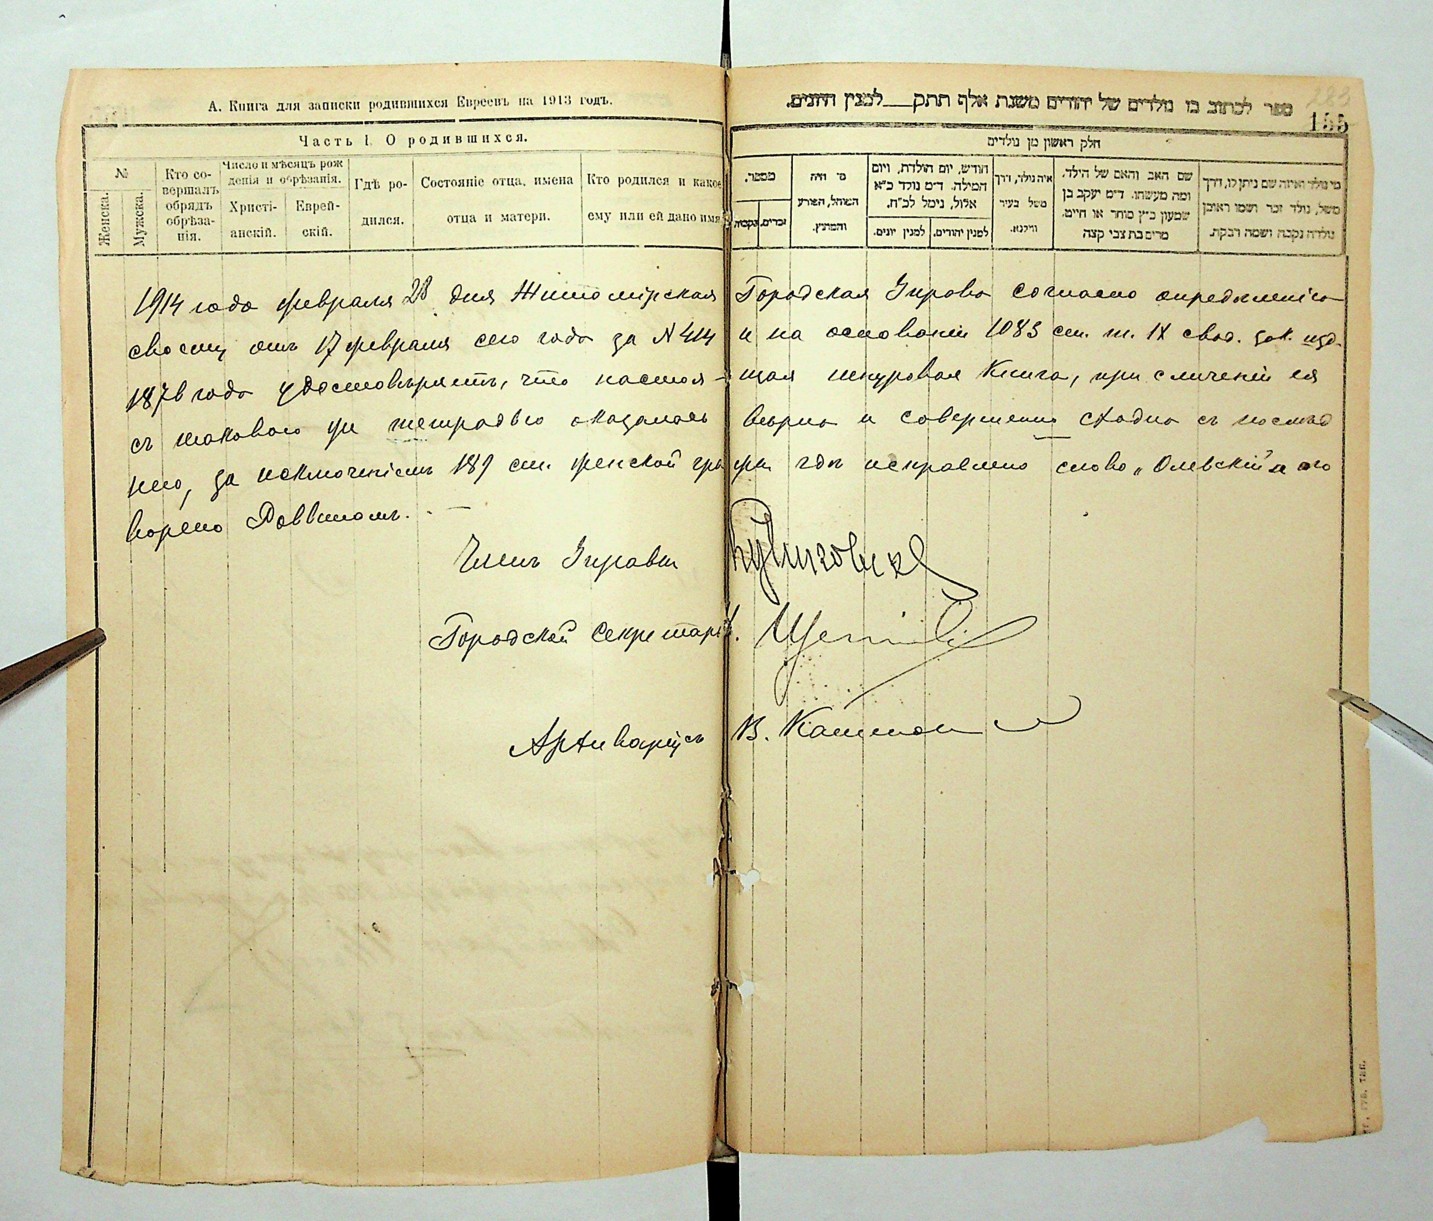 А. Книга для записки родившихся Евреевъ на 1913 годъ.
Часть I. О родившихся.
№
Женска.
Мужска.
Кто со-
вершалъ
обрядъ
обрѣза-
нія.
Число и мѣсяцъ рож
денія и обрѣзанія.
Христі-
анскій.
Еврей-
скій.
Гдѣ ро-
дился.
Состояніе отца, имена
отца и матери.
Кто родился и какое
ему или ей дано имя
ספר לכתוב בו נולדים של יהודים משנת אלף תתק__למנין היונים.
155
חלק ראשון מן נולדים
מספר.
זכרים.
נקבות
מי היה
המוהל, הפורע
והמוצץ.
חודש, יום הולדת, ויום
המילה. ד״מ נולד כ״א
אלול, נימל לכ״ח.
למנין יהודים.
למנין יונים.
איה נולד, דרך
משל בעיר
ווילנא.
שם האב והאם של הילד,
ומה מעשהו. ד״מ יעקב בן
שמעון כ״ץ סוחר או חייט.
מרים בת צבי קצה
מי נולד ואיזה שם ניתן לו, דרך
משל, נולד זכר ושמו ראובן
נולדה נקבה ושמה רבקה.
1914 года февраля 28 дня Житомірская Городская Управа согласно опредѣленію
своему отъ 17 февраля сего года за № 414 и на основаніи 1083 ст. т. IX свод. зак. изд.
1876 года удостовѣряетъ, что настоя-щая шнуровая Книга, при сличеніи ея
съ таковою же тетрадью оказалась вѣрна и совершенно сходна съ послѣд
нею, за исключеніемъ 189 ст. женской графы гдѣ исправлено слово „Олевскій" и ого
ворено Раввиномъ.
Членъ Управы
Городской Секретарь.
Архиваріусъ В.